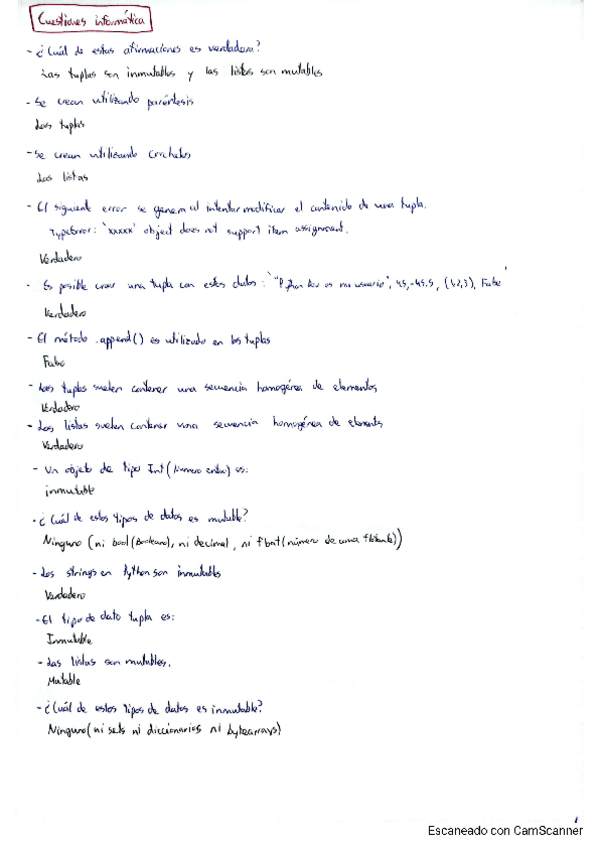 Cuestiones informática
- ¿Cuál de estas afirmaciones es verdadera?
Las tuplas son inmutables y las listas son mutables
- Se crean utilizando paréntesis
Las tuplas
- Se crean utilizando corchetes
Las listas
- El siguiente error se genera al intentar modificar el contenido de una tupla.
TypeError: 'xxxxx' object does not support item assignment.
Verdadero
- Es posible crear una tupla con estos datos: "Python es mi", 45, -45.5, (4,2,3), False
Verdadero
- El método .append() es utilizado en las tuplas
Falso
- Las tuplas suelen contener una secuencia homogénea de elementos
Verdadero
- Las listas suelen contener una secuencia homogénea de elements
Verdadero
- Un objeto de tipo Int (Número entero) es:
inmutable
- ¿Cuál de estos tipos de datos es mutable?
Ninguno (ni bool (Booleano), ni decimal, ni float (número de coma flotante))
- Los strings en Python son inmutables
Verdadero
- El tipo de dato tupla es:
Inmutable
- Las listas son mutables.
Mutable
- ¿Cuál de estos tipos de datos es inmutable?
Ninguno (ni sets ni diccionarios ni bytearrays)
Escaneado con CamScanner